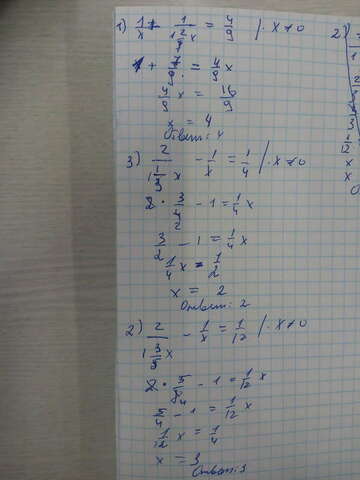 1) 1/x + 1/(1 2/7 x) = 4/9 /· x≠0
1 + 7/9 = 4/9 x
4/9 x = 16/9
x = 4
Ответ: 4
3) 2/(1 1/3 x) - 1/x = 1/4 /· x≠0
2 · 3/4 - 1 = 1/4 x
3/2 - 1 = 1/4 x
1/4 x = 1/2
x = 2
Ответ: 2
2) 2/(1 3/5 x) - 1/x = 1/12 /· x≠0
2 · 5/8 - 1 = 1/12 x
5/4 - 1 = 1/12 x
1/12 x = 1/4
x = 3
Ответ: 3
2)